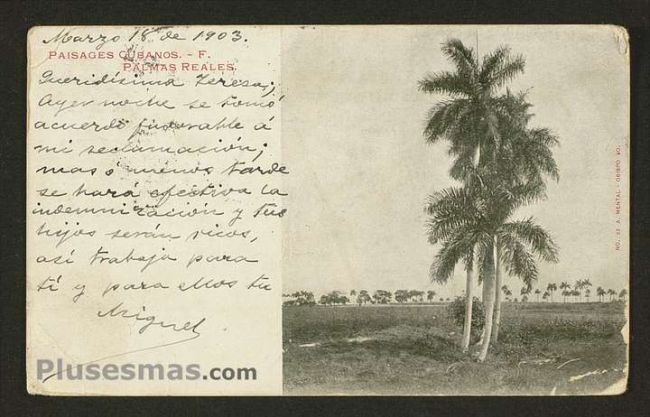 Marzo 18 de 1903.
PAISAGES CUBANOS. - F.
PALMAS REALES.
Queridísima Teresa;
Ayer noche se tomó
acuerdo favorable á
mi reclamación;
mas ó menos tarde
se hará efectiva la
indemnización y tus
hijos serán ricos,
así trabaja para
tí y para ellos tu
Miguel
NO. 32 A. MENTAL - OBISPO 90.
Plusesmas.com